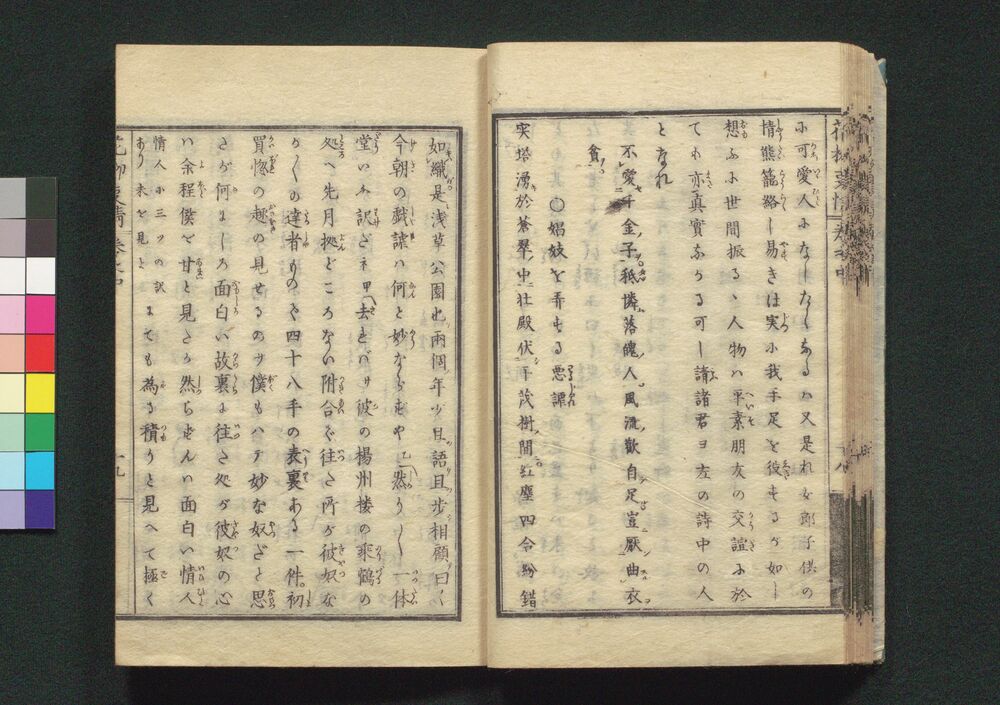 に可愛人になしたくあるハ又是れ女郎子供の
情熊籠絡し易きは実に我手足を役するが如し
想ふに世間振るヽ人物ハ平素朋友の交誼に於
ても亦真實なる可し請諸君ヨ左の詩中の人
となれ
不愛千金子秖憐落魄人風流歡自足豈厭曲衣
貧
○娼妓を弄する悪譚
突塔湧於蒼翠中壮殿伏乎茂樹間紅塵四合紛錯
如織是浅草公園也兩個年少且語且歩相顧曰く
今朝の戯謔ハ何と妙ならずや乙然り〳〵一体
堂いふ訳だネ甲去ればサ彼の楊州楼の乘鶴の
処へ先月拠どころない附合で往た所が彼奴な
か〳〵の達者もので四十八手の表裏ある一件初
買惚の趣の見せるのサ僕もハテ妙な奴だと思
さが何にしろ面白い故裏に往た処が彼奴の心
ハ余程僕を甘と見たが然らずんハ面白い情人
情人に三ツの訳
あり末を見よ
までも為る積りと見へて極く
花柳事情 巻之中
十九